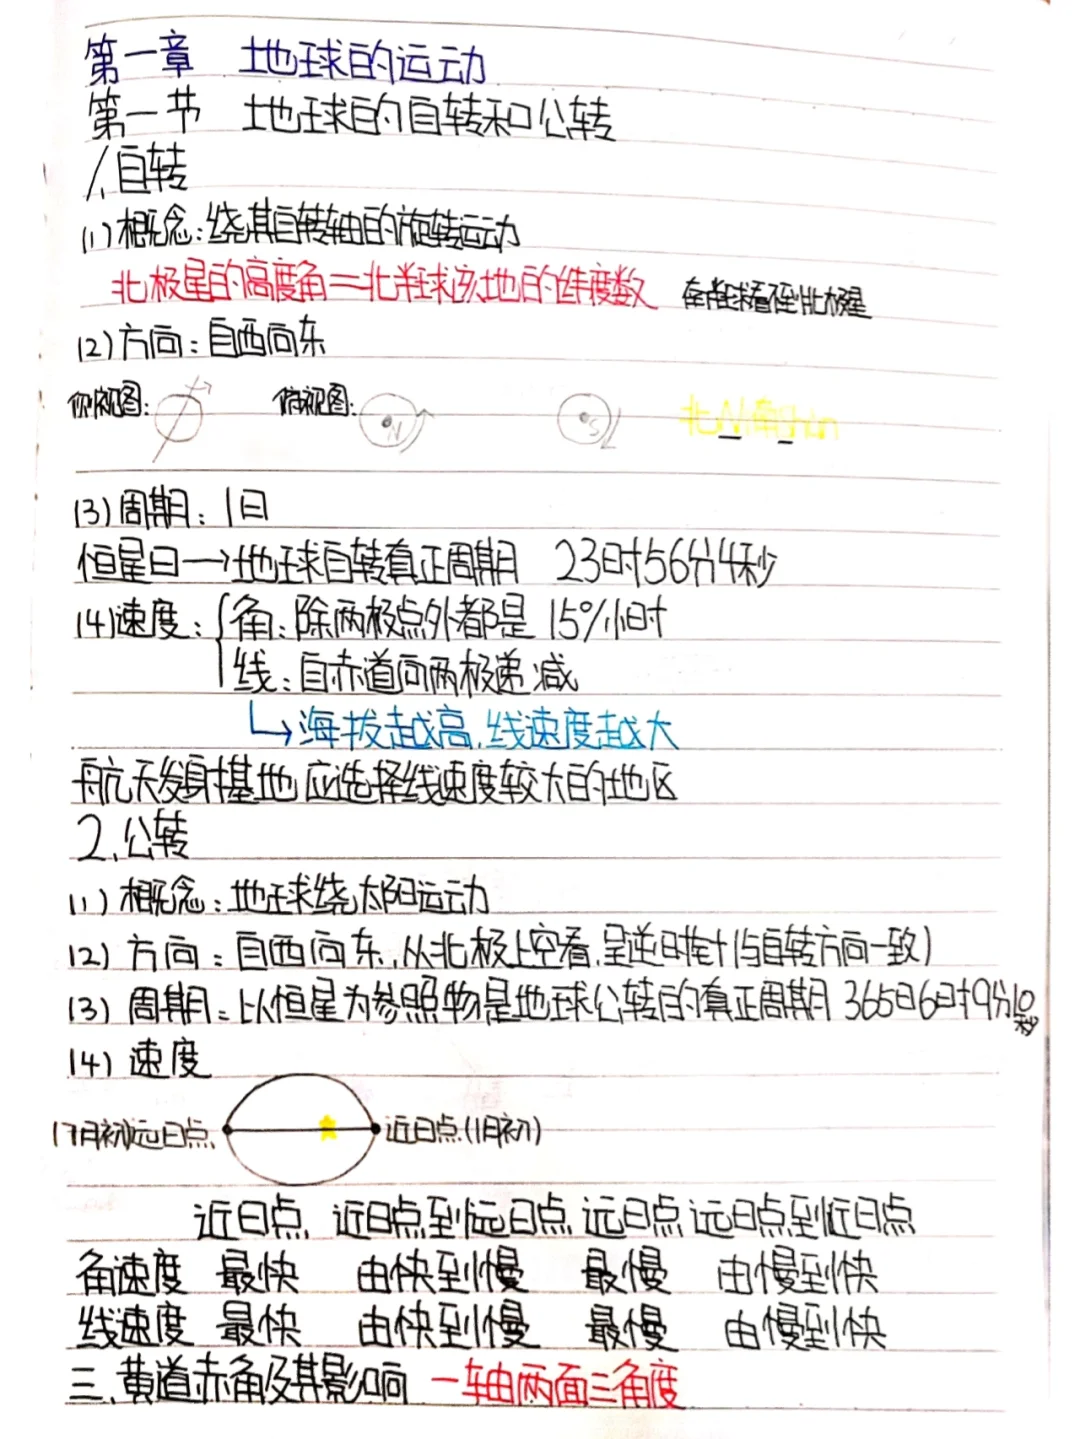 第一章 地球的运动
第一节 地球的自转和公转
1.自转
(1)概念:绕其自转轴的旋转运动
北极星的高度角=北半球该地的纬度数 南半球看不到北极星
(2)方向:自西向东
侧视图: 俯视图: N S 北N南S
(3)周期:1日
恒星日→地球自转真正周期 23时56分4秒
(4)速度:{角:除两极点外都是 15°/小时
线:自赤道向两极递减
↳海拔越高,线速度越大
航天发射基地应选择线速度较大的地区
2.公转
(1)概念:地球绕太阳运动
(2)方向:自西向东,从北极上空看,呈逆时针(与自转方向一致)
(3)周期:以恒星为参照物是地球公转的真正周期 365日6时9分10秒
(4)速度
(7月初)远日点 近日点(1月初)
近日点 近日点到远日点 远日点 远日点到近日点
角速度 最快 由快到慢 最慢 由慢到快
线速度 最快 由快到慢 最慢 由慢到快
三.黄道赤角及其影响 一轴两面三角度